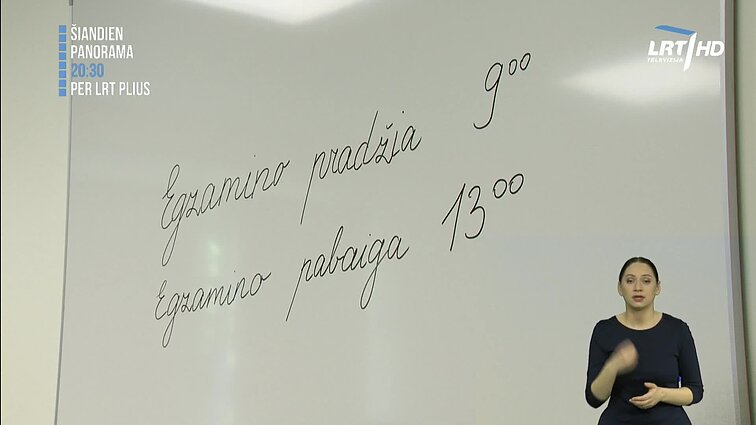 ŠIANDIEN
PANORAMA
20:30
PER LRT PLIUS
LRT HD
TELEVIZIJA
Egzamino pradžia 9⁰⁰
Egzamino pabaiga 13⁰⁰